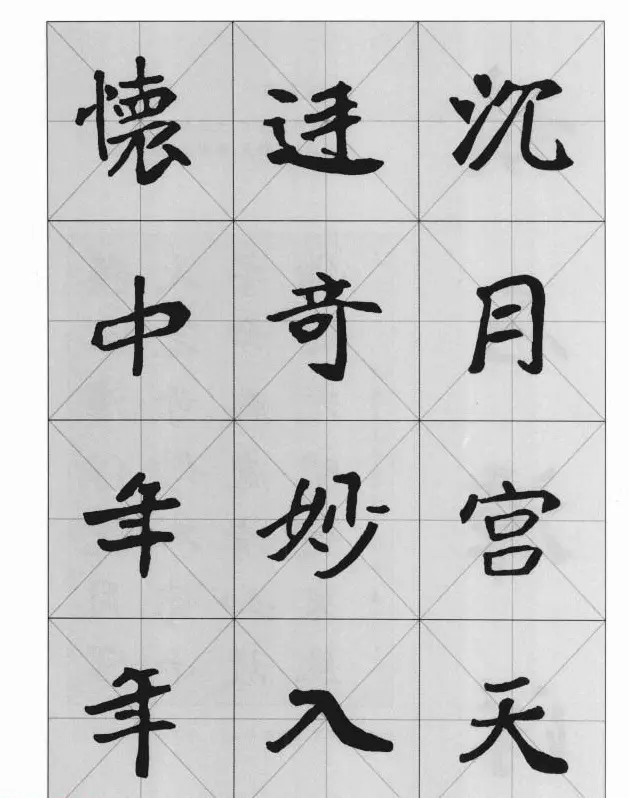 沉月宫天
奇妙入
懷中年年